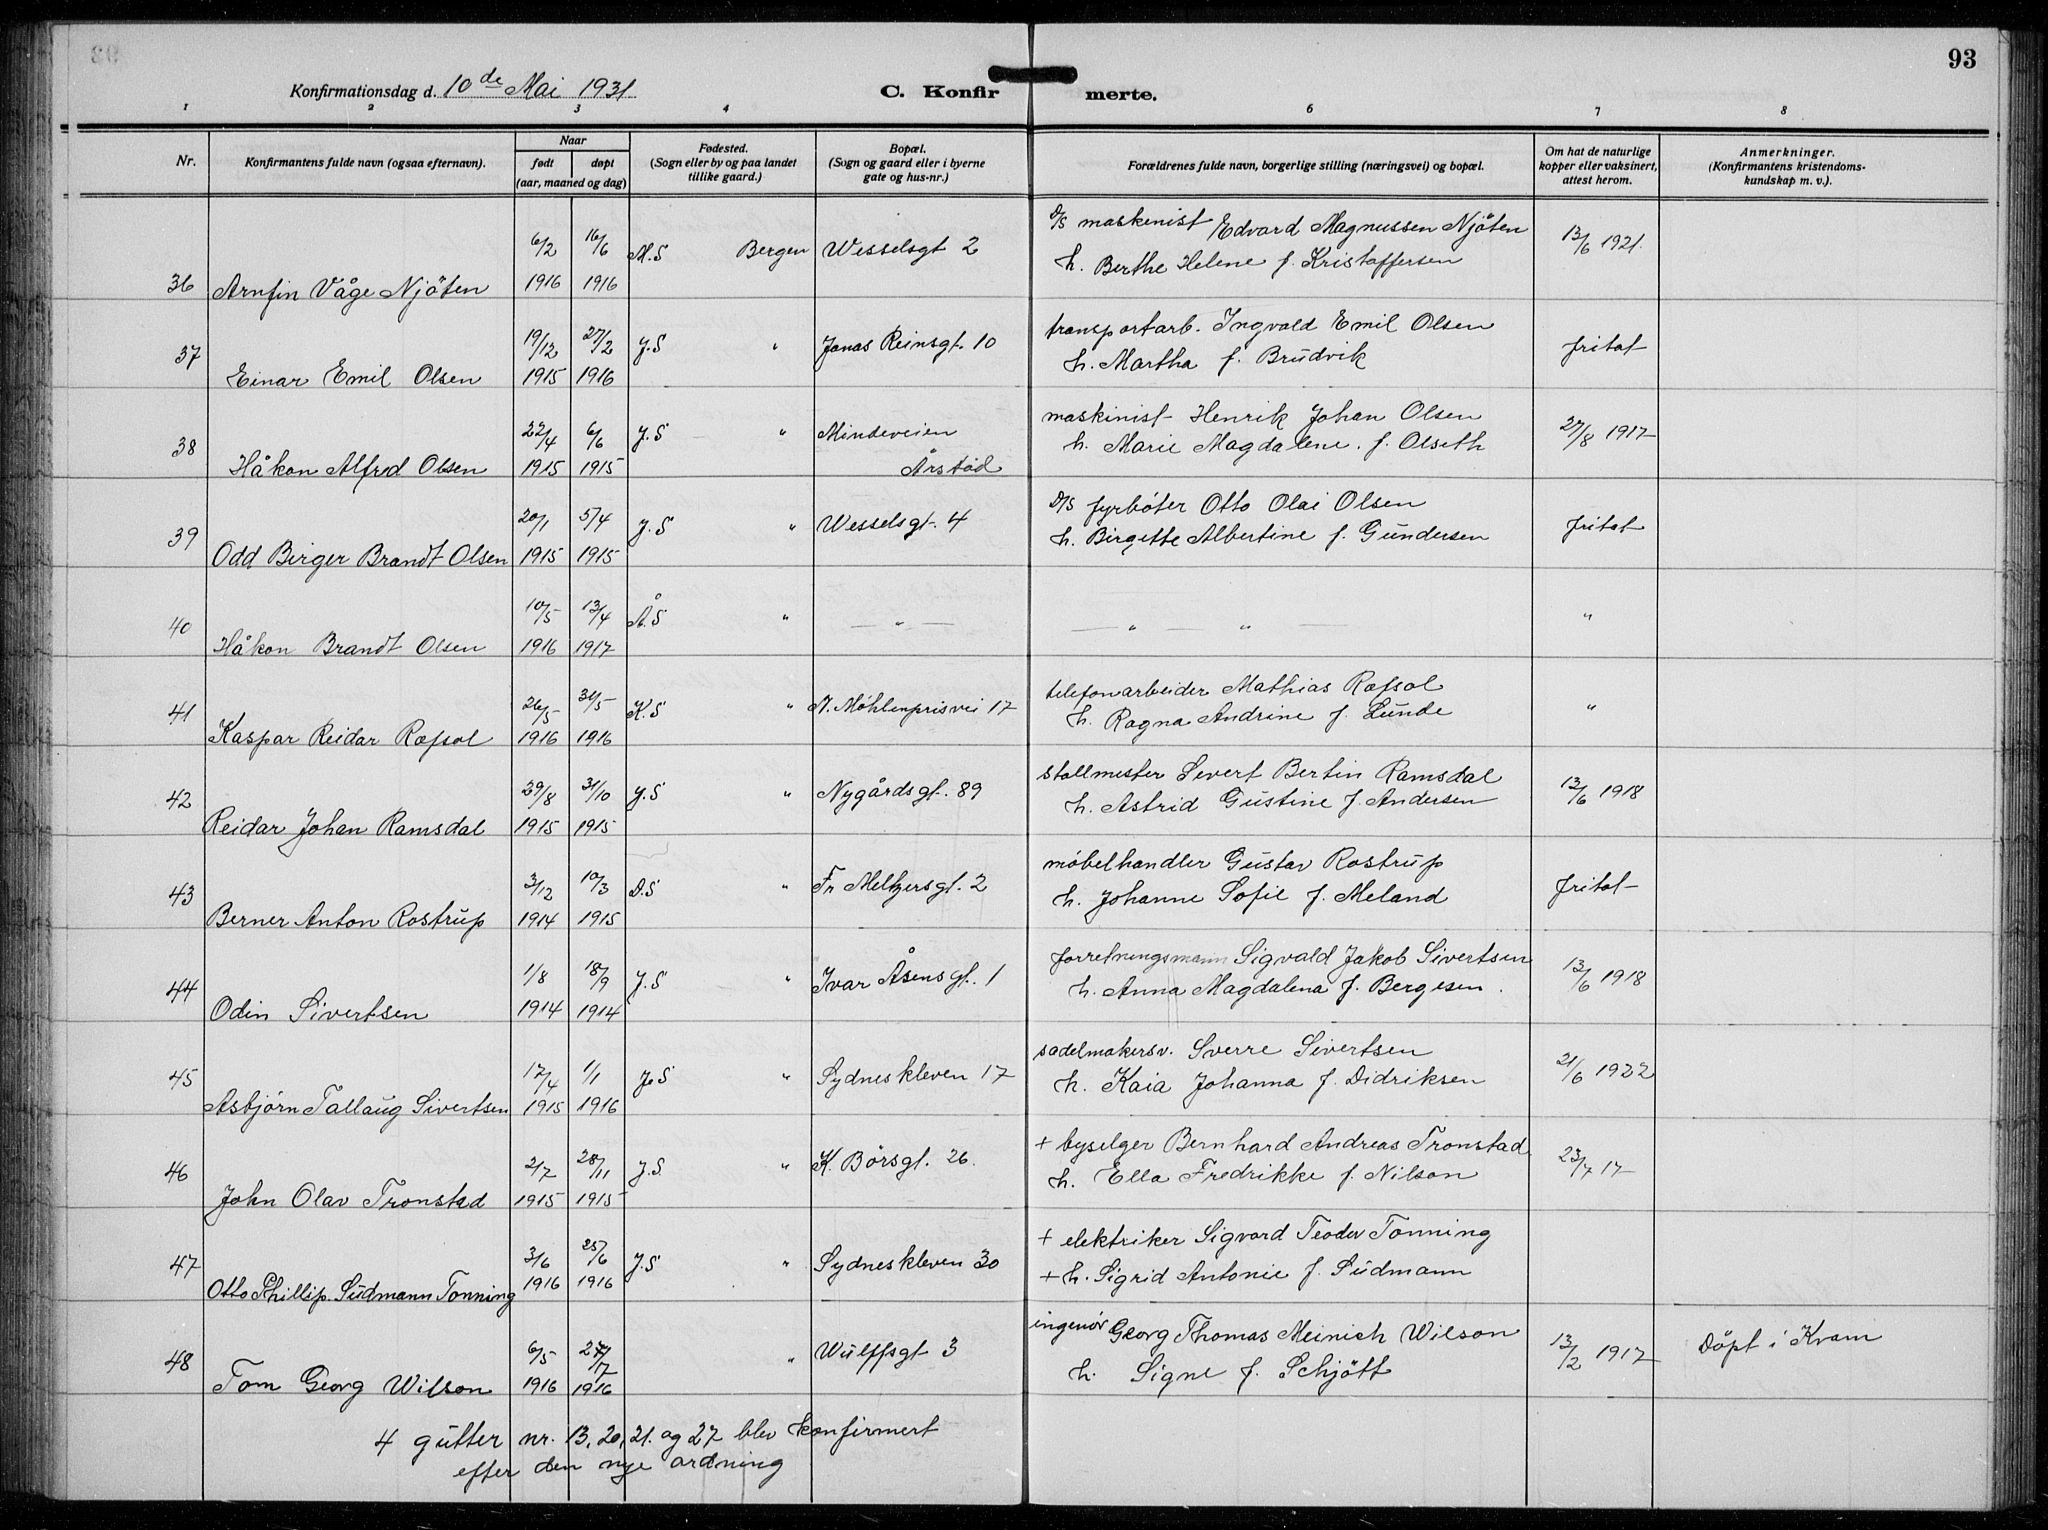 93
Konfirmationsdag d. 10de Mai 1931
C. Konfirmerte.
1 2 3 4 6 7 8
Nr. Konfirmantens fulde navn (ogsaa efternavn). Naar født døpt (aar, maaned og dag) Fødested. (Sogn eller by og paa landet tillike gaard.) Bopæl. (Sogn og gaard eller i byerne gate og hus-nr.) Forældrenes fulde navn, borgerlige stilling (næringsvei) og bopæl. Om hat de naturlige kopper eller vaksinert, attest herom. Anmerkninger. (Konfirmantens kristendomskundskap m. v.).
6/2 16/6 M.S Bergen Wesselsgt 2 D/S maskinist Edvard Magnussen Njöten 13/6 1921.
36 Arnfin Våge Njöten 1916 1916 h. Berthe Helene f. Kristoffersen
37 19/12 27/2 J.S " Jonas Reinsgt. 10 transportarb. Ingvald Emil Olsen fritat
Einar Emil Olsen 1915 1916 h. Martha f. Brudvik
38 22/4 6/6 J.S " Mindeveien maskinist Henrik Johan Olsen 27/8 1917
Håkon Alfred Olsen 1915 1915 Årstad h. Marie Magdalene. f. Olseth
39 20/1 5/4 J.S " Wesselsgt. 4 D/S fyrbøter Otto Olai Olsen fritat
Odd Birger Brandt Olsen 1915 1915 h. Birgitte Albertine f. Gundersen
40 10/5 13/4 Å.S " — " — — " " — "
Håkon Brandt Olsen 1916 1917
41 26/5 31/5 K.S " N. Möhlenprisvei 17 telefonarbeider Mathias Ræfsal "
Kaspar Reidar Ræfsal 1916 1916 h. Ragna Andrine f. Lunde
42 29/8 31/10 J.S " Nygårdsgt. 89 stallmester Severt Bertin Ramsdal 13/6 1918
Reidar Johan Ramsdal 1915 1915 h. Astrid Gustine f. Andersen
43 3/12 10/3 D.S " Fr Meltzersgt. 2 møbelhandler Gustav Rostrup fritat
Berner Anton Rostrup 1914 1915 h. Johanne Sofie f. Meland
44 1/8 18/9 J.S " Ivar Åsensgt. 1 forretningsmann Sigvald Jakob Sivertsen 13/6 1918
Odin Sivertsen 1914 1914 h. Anna Magdalena f. Bergesen.
45 17/4 1/1 J.S " Sydneskleven 17 sadelmakersv. Sverre Sivertsen 21/6 1922
Asbjørn Tallaug Sivertsen 1915 1916 h. Kaia Johanna f. Didriksen
46 2/7 28/11 J.S " K. Börsgt. 26. + byselger Bernhard Andreas Tronstad 23/4 17
John Olav Tronstad 1915 1915 h. Ella Fredrikke f. Nilson
47 3/6 25/6 J.S " Sydneskleven 30 + elektriker Sigvard Teodor Tonning
Otto Phillip. Sudmann Tonning 1916 1916 + h. Sigrid Antonie f. Sudmann
48 6/5 " Wulffsgt 3 ingeniør Georg Thomas Meinich Wilson 13/2 1917 Döpt i Kvam
Tom Georg Wilson 1916 1916 h. Signe f. Schjött
4 gutter nr. 13, 20, 21. og 27 blev konfirmert
efter den nye ordning